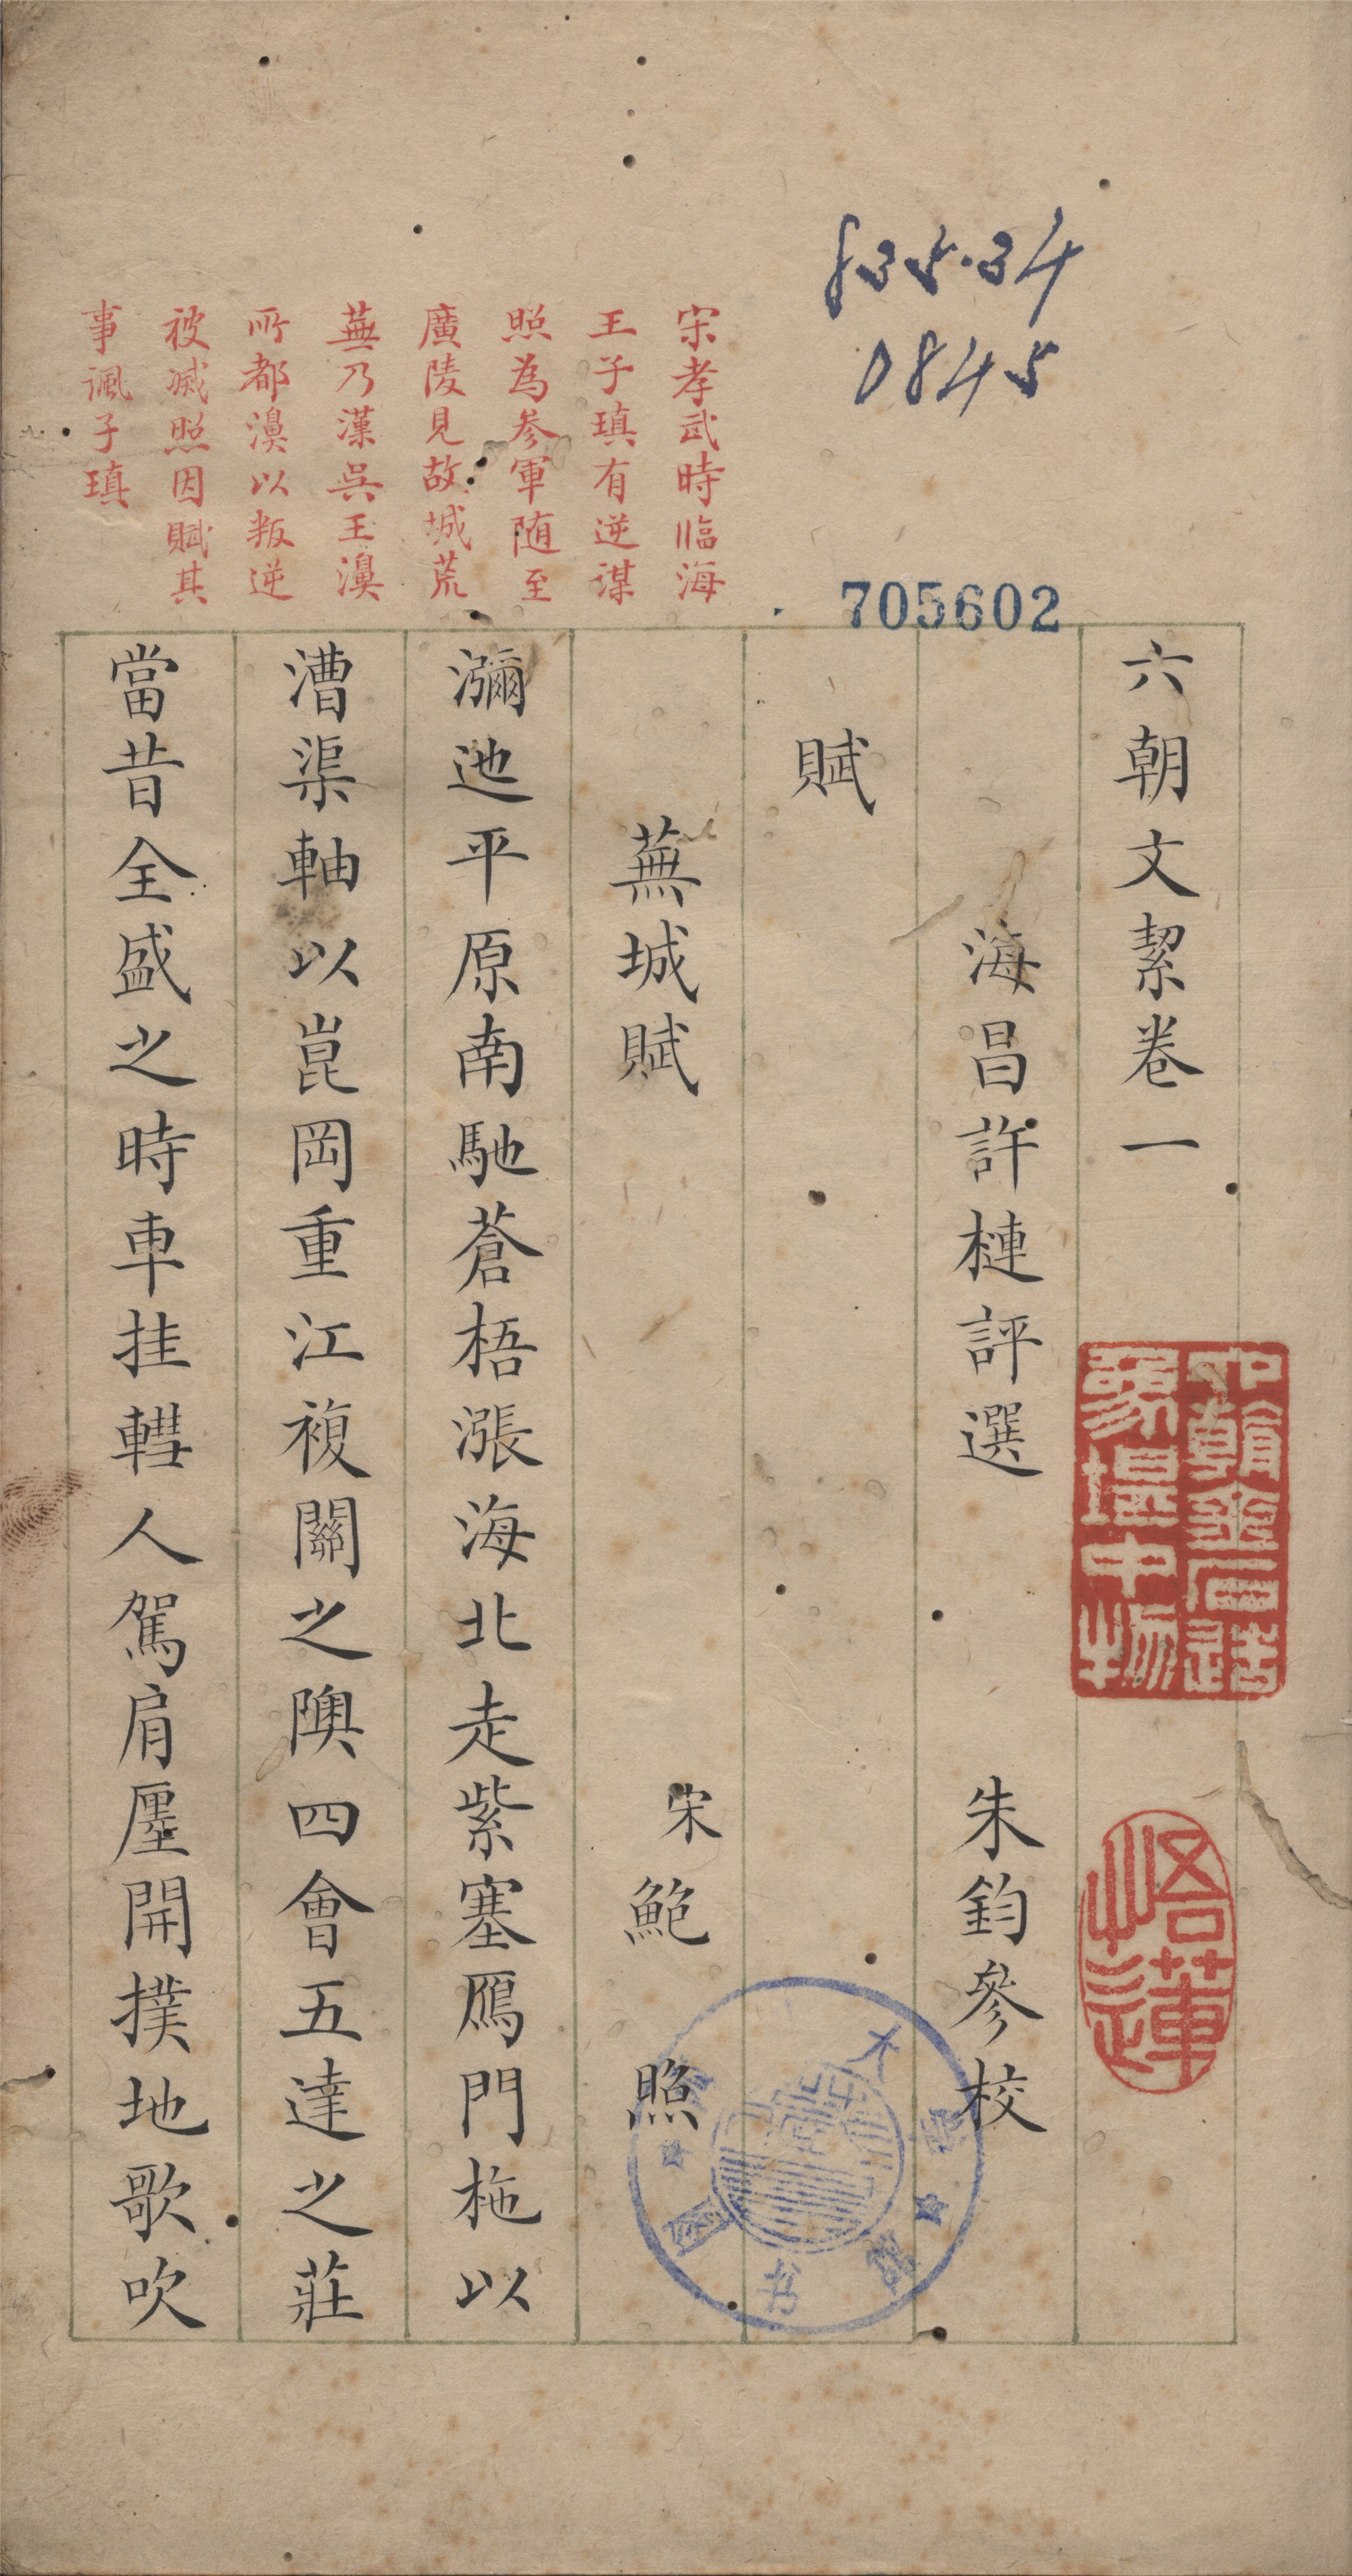 835.34
0845
705602
宋孝武時臨海
王子瑱有逆謀
照為參軍随至
廣陵見故城荒
蕪乃漢吳王濞
所都濞以叛逆
被滅照因賦其
事諷子瑱
六朝文絜卷一
海昌許槤評選 朱鈞參校
賦
蕪城賦 宋鮑照
瀰迆平原南馳蒼梧漲海北走紫塞鴈門柂以
漕渠軸以崑岡重江複關之隩四會五達之莊
當昔全盛之時車挂轊人駕肩廛開撲地歌吹
悟蓮